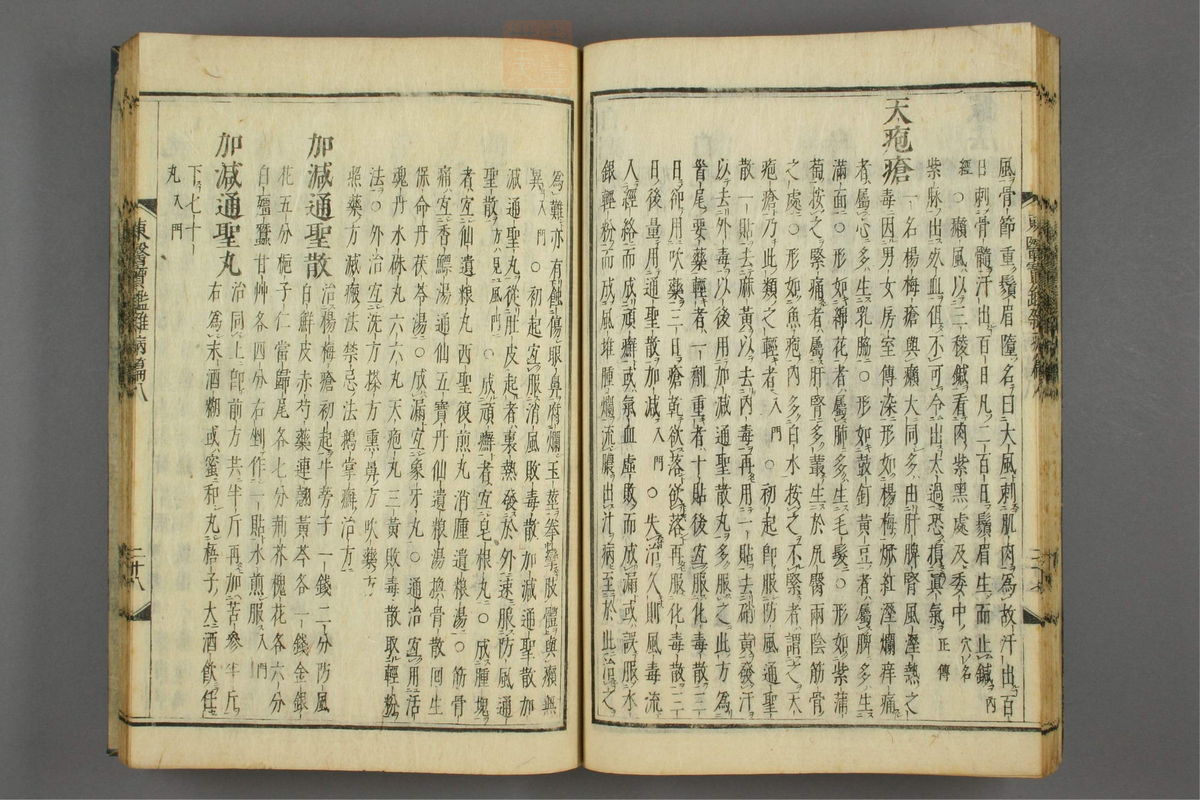 風骨節重鬚眉墮名曰大風刺肌肉為故汗出百
日刺骨髓汗出百日凡二百日鬚眉生而止鍼内
經○癩風以三稜鍼看肉紫黑處及委中穴名
紫脉出死血但不可令出太過恐損眞氣正傳
天疱瘡
一名楊梅瘡與癩大同多由肝脾腎風溼熱之
毒因男女房室傳染形如楊梅焮紅溼爛痒痛
者屬心多生乳脇○形如鼓釘黃豆者屬脾多生
滿面○形如綿花者屬肺多生毛髮○形如紫蒲
萄按之緊痛者屬肝腎多叢生於尻臀兩陰筋骨
之處○形如魚疱内多白水按之不緊者謂之天
疱瘡乃此類之輕者入門○初起卽服防風通聖
散一貼去麻黃以去内毒再用一貼去硝黃發汗
以去外毒以後用加減通聖散丸多服之此方為
首尾要藥輕者一劑重者十貼後宜服化毒散三
日卻用吹藥三日瘡乾欲落欲落再服化毒散三
日後量用通聖散加減入門○失治久則風毒流
入經絡而成頑癬或氣血虛敗而成漏或誤服水
銀輕粉而成風堆腫爛流膿出汁病至於此治之
為難亦有蝕傷眼鼻府爛玉莖拳攣肢體與癩無
異入門○初起宜服消風敗毒散加減通聖散加
減通聖丸從肚皮起者裏熱發於外速服防風通
聖散方見風門○成頑癬者宜皂根丸○成腫塊
者宜仙遺粮丸西聖復煎丸消腫遺粮湯○筋骨
痛宜香鰾湯通仙五寶丹仙遺粮湯換骨散回生
保命丹茯苓湯○成漏宜象牙丸○通治宜用活
魂丹水硃丸六六丸天疱丸三黃敗毒散取輕粉
法○外治宜洗方搽方熏鼻方吹藥方
照藥方滅瘢法禁忌法鵝掌癬治方
加減通聖散
治楊梅瘡初起牛旁子一錢二分防風
白鮮皮赤芍藥連翹黃芩各一錢金銀
花五分梔子仁當歸尾各七分荊芥槐花各六分
白殭蠶甘艸各四分右剉作一貼水煎服入門
加減通聖丸
治同上卽前方共半斤再加苦參半斤
右為末酒糊或蜜和丸梧子大酒飮任
下七十
丸入門
東醫寶鑑雜病篇八
二十八